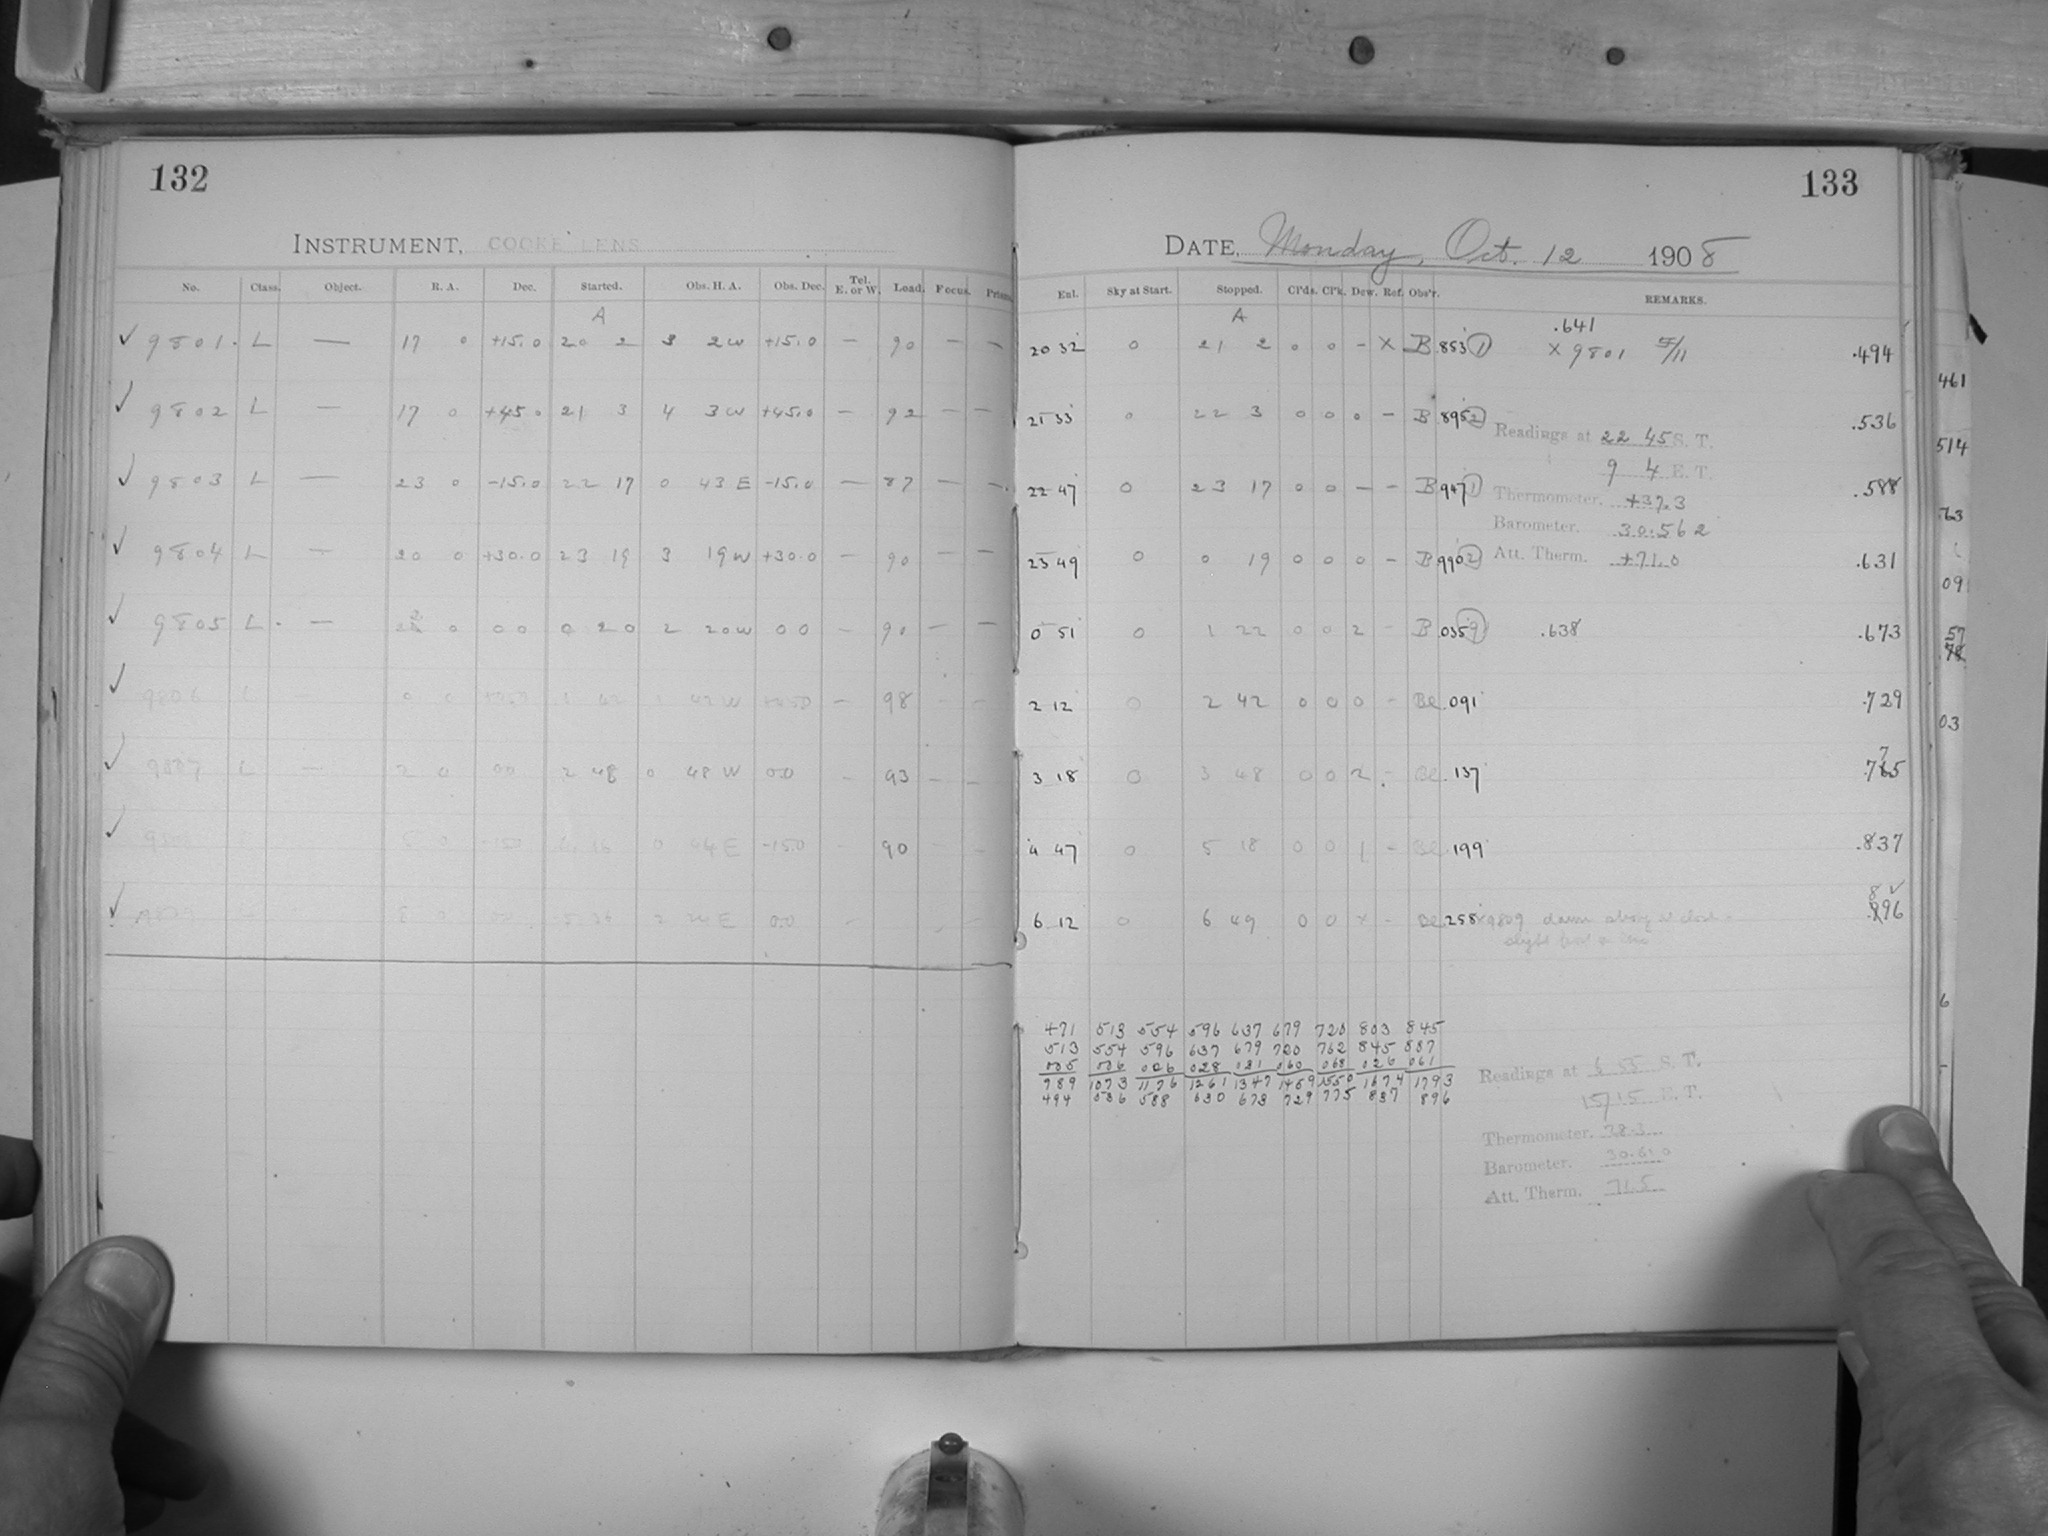 132
INSTRUMENT, COOKE LENS
No. Class. Object. R. A. Dec. Started. Obs. H. A. Obs. Dec. Tel. E. or W. Load. Focus. Prisms.
A
✓ 9801. L — 17 0 +15.0 20 2 3 2W +15.0 — 90 — —
✓ 9802 L — 17 0 +45.0 21 3 4 3W +45.0 — 92 — —
✓ 9803 L — 23 0 -15.0 22 17 0 43 E -15.0 — 87 — —
✓ 9804 L — 20 0 +30.0 23 19 3 19W +30.0 — 90 — —
✓ 9805 L — 22 0 00 0 20 2 20W 00 — 90 — —
✓ 9806 L — 0 0 1 42 1 42W — 98 — —
✓ 9807 L — 2 0 00 2 48 0 48 W 00 — 93 — —
✓ 5 0 -150 4 16 0 44 E -150 — 90 — —
✓ 00 2 24 E 00 —
133
DATE, Monday, Oct. 12 1908
Ent. Sky at Start. Stopped. Cl'ds. Cl'k. Dew. Ref. Obs'r. REMARKS.
A
.641
20 32 0 21 2 0 0 - X B 853 1 X 9801 5/11 .494
21 33 0 22 3 0 0 0 - B 895 2 .536
Readings at 22 45 S. T.
9 4 E. T.
22 47 0 23 17 0 0 - - B 947 1 .588
Thermometer. +37.3
Barometer. 30.562
23 49 0 0 19 0 0 0 - B 990 2 .631
Att. Therm. +71.0
0 51 0 1 22 0 0 2 - B 035 9 .638 .673
2 12 0 2 42 0 0 0 - Be .091 .729
3 18 0 3 48 0 0 2 - Be .137 .775
4 47 0 5 18 0 0 1 - Be .199 .837
6 12 0 6 49 0 0 x - Be .258 x9809 dawn strong at close - .896
slight
471 513 554 596 637 679 720 803 845
513 554 596 637 679 720 762 845 887
005 006 026 028 031 060 068 026 061
989 1073 1176 1261 1347 1459 1550 1674 1793
494 536 588 630 673 729 775 837 896
Readings at 6 55 S. T.
15/15 E. T.
Thermometer. 38.3
Barometer. 30.610
Att. Therm. 71.5
461
514
63
09
57
78
03
6